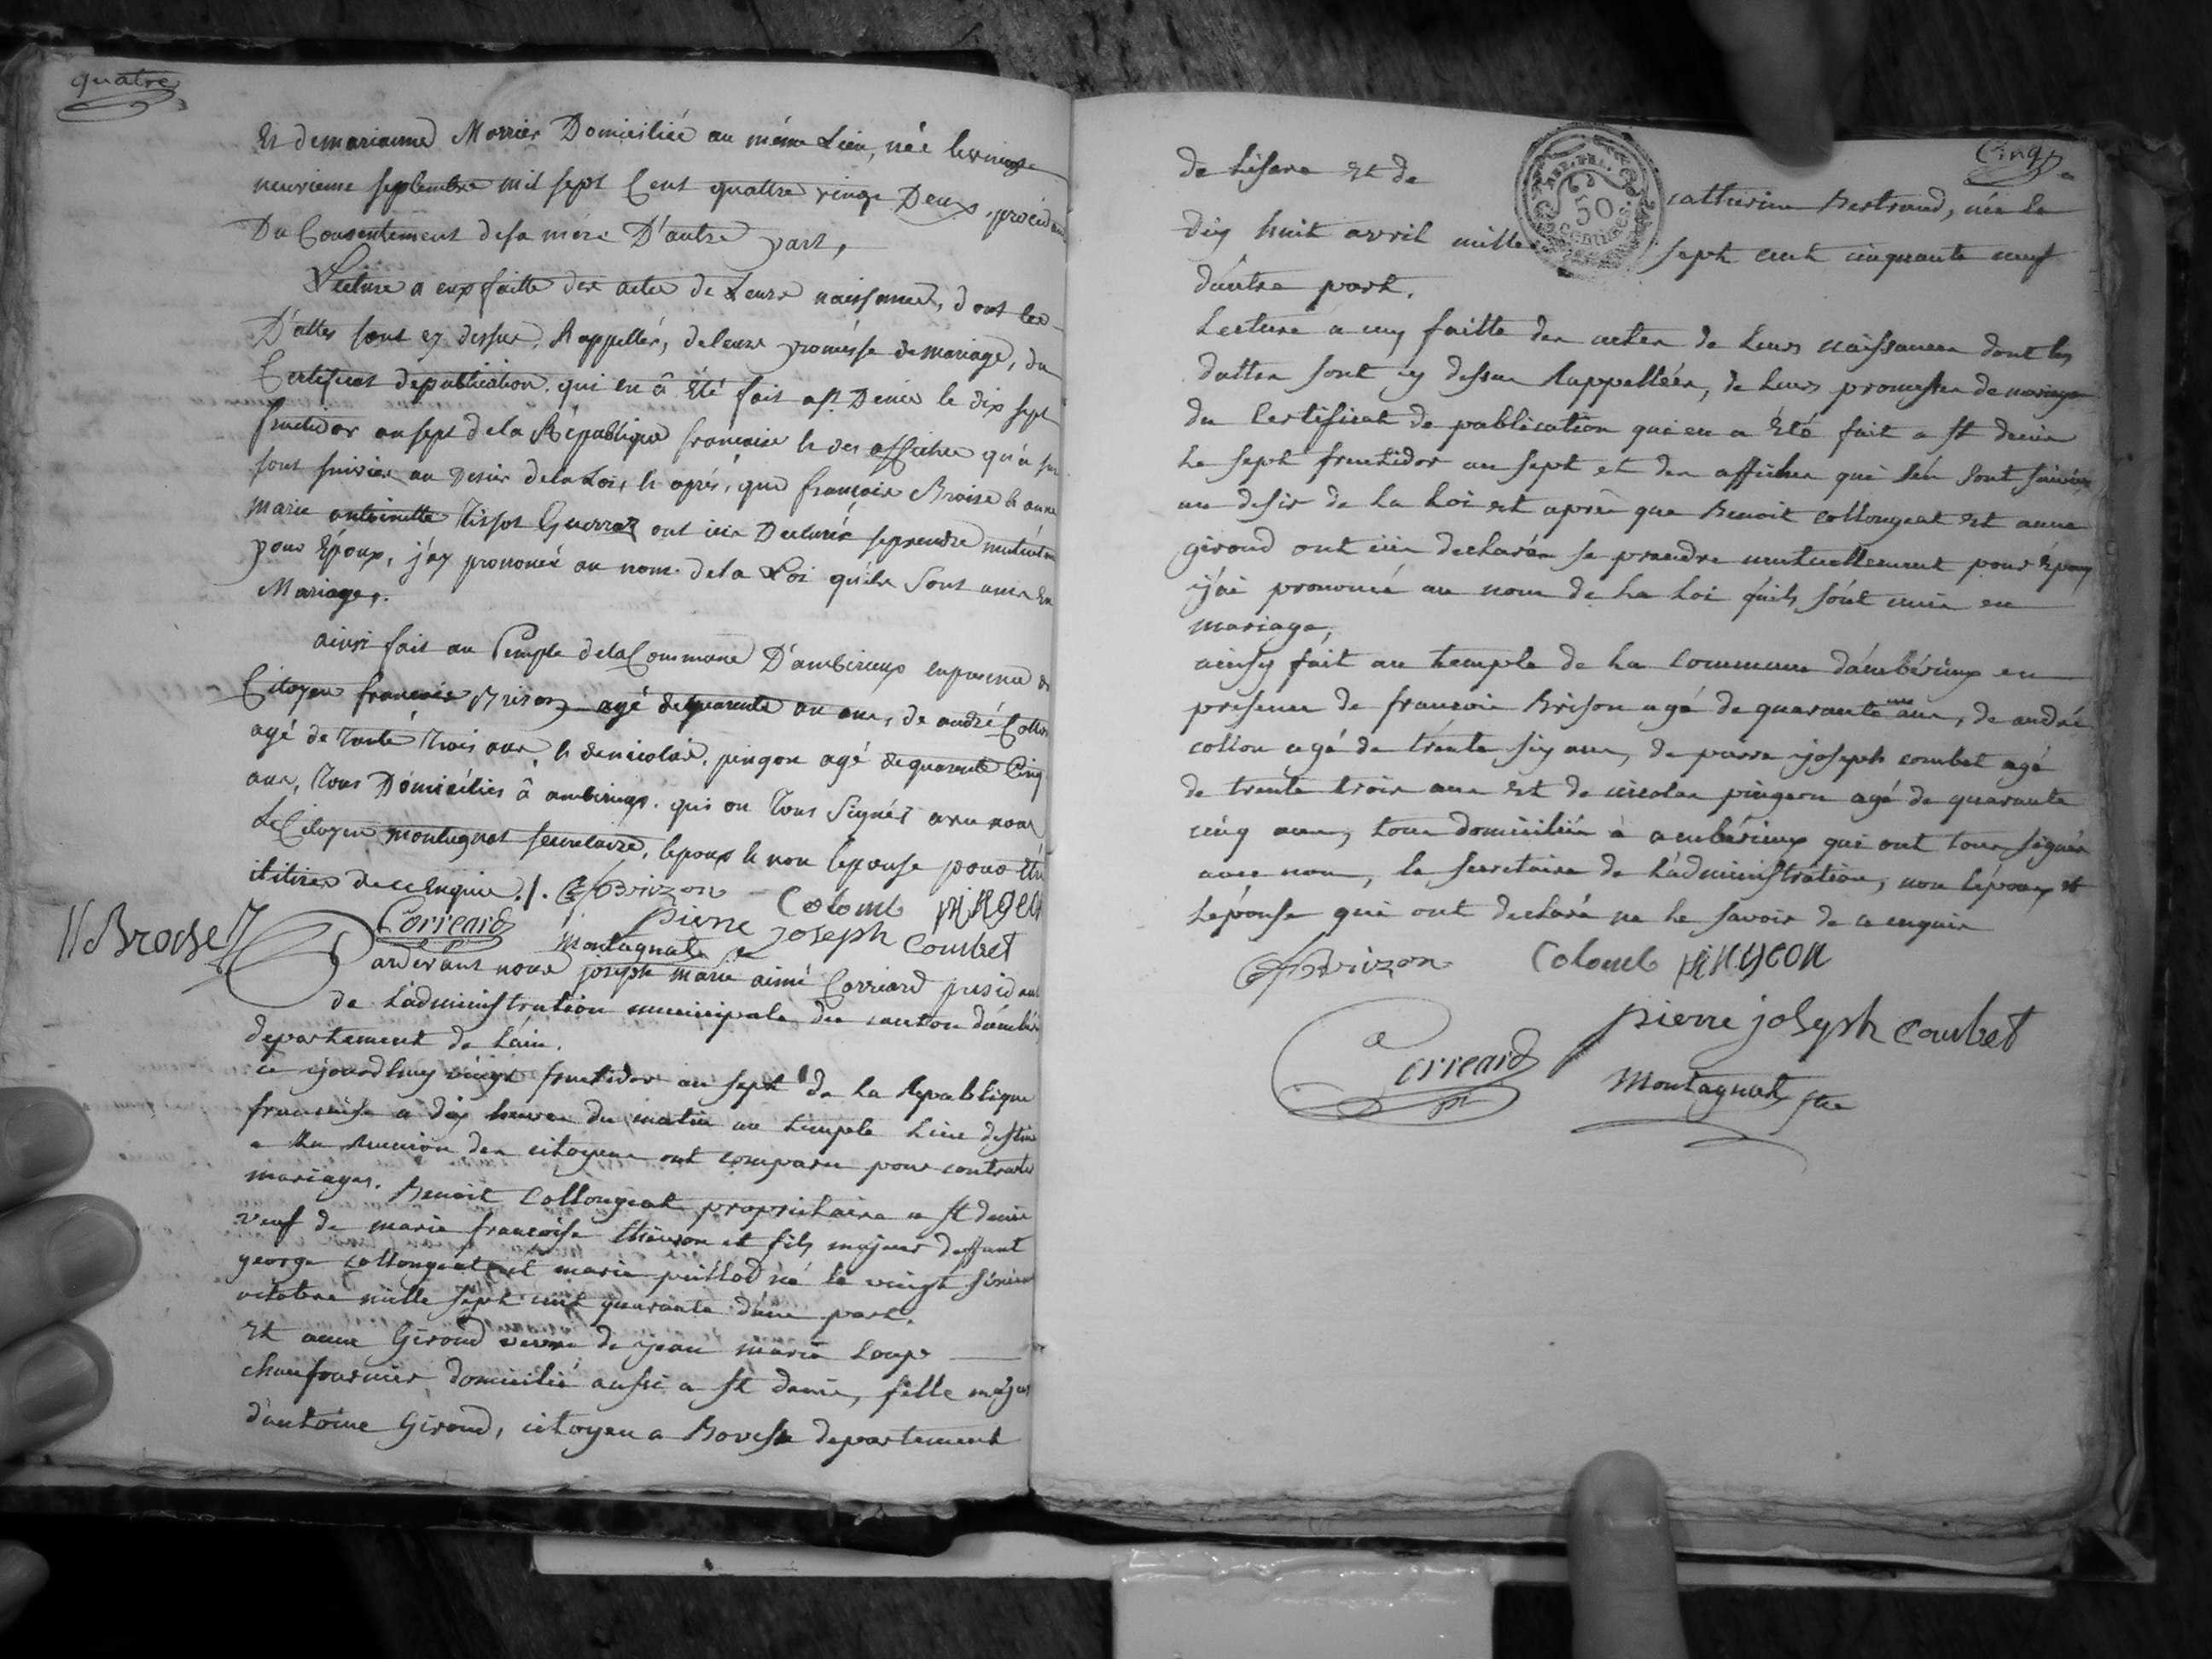 quatre
Et demarianne Morrier Domiciliée au même Lieu, née le vingt
neuvieme septembre mil sept Cent quattre vingt Deux, procédant
Du Consentement desa mère D'autre part,
Lecture a eux faitte des actes de Leurs naissance, dont les
D'attes sont cy dessus Rappellés, deleurs promèsse demariage, du
Certificat depublication qui en â été fait a st Denis le dix sept
fructidor an sept dela République francaise & des affiches qu'en
sont suivies au Desir dela Loi, & après, que françois Braise & anne
marie antoinette Tissot Guerraz ont Declarés seprendre
pour Epoux, j'ay prononcé au nom dela Loi qu'ils sont unis En
Mariage,.
ainsi fait au Temple dela Commune D'amberieux enpresence
Citoyen francois Brison agé dequarante un ans, de andré Collon
agé de Trente Trois ans, & denicolas pingon agé dequarante Cinq
ans, Tous Domiciliés â amberieux qui on Tous Signés avec nous
Le Citoyen montagnat secretaire, lepoux & non lepouse pour
de ce Enquise ./. Brizon Colomb pingeon
Corriard pierre joseph Combet
Brose Montagnat
Pardevant nous joseph marie aimé Corriard president
de L'administration municipale du canton d'ambér
departement de L'ain.
ce ijourdhuy vingt fructidor an sept de La Republique
francaise a dix heures du matin au temple Lieu destiné
a La Reunion des citoyens ont comparu pour contracter
mariages. Benoit Collongeat propriétaire a st denis
veuf de marie francoise et fils majeur deffunt
george Collongeat et marie né le vingt
octobre mille sept cent quarante d'une part.
Et anne Giroud veuve de jean marie Loup
chaufournier domicilié aussi a st denis, fille majeur
d'antoine Giroud, citoyen a departement
Cinq
de Lisere Et de catherine Bertrand, née Le
dix huit avril mille sept cent cinquante neuf
d'autre part.
50
CENTIMES
Lecture a eux faitte des actes de Leurs naissances dont les
dattes sont cy dessus Rappellées, de Leurs promesses de mariage
du Certificat de publication qui en a Eté fait a st denis
Le sept fructidor an sept et des affiches qui s'en sont suivies
au desir de La Loi Et après que Benoit collongeat Et anne
giroud ont declarés se prendre mutuellement pour Epoux
ij'ai prononcé au nom de La Loi qu'ils sont unis en
mariage,
ainsy fait au temple de La Commune d'ambérieux en
presence de francois Brison agé de quarante une ans, de andré
collon agé de trente six ans, de pierre ijoseph combet agé
de trente trois ans Et de nicolas pingeon agé de quarante
cinq ans, tous domiciliés à ambérieux qui ont tous signés
avec nous, le secretaire de L'administration, non L'epoux et
Lépouse qui ont declaré ne Le savoir de ce enquis
Brizon Colomb pingeon
pierre joseph combet
Corriard pt
Montagnat stre